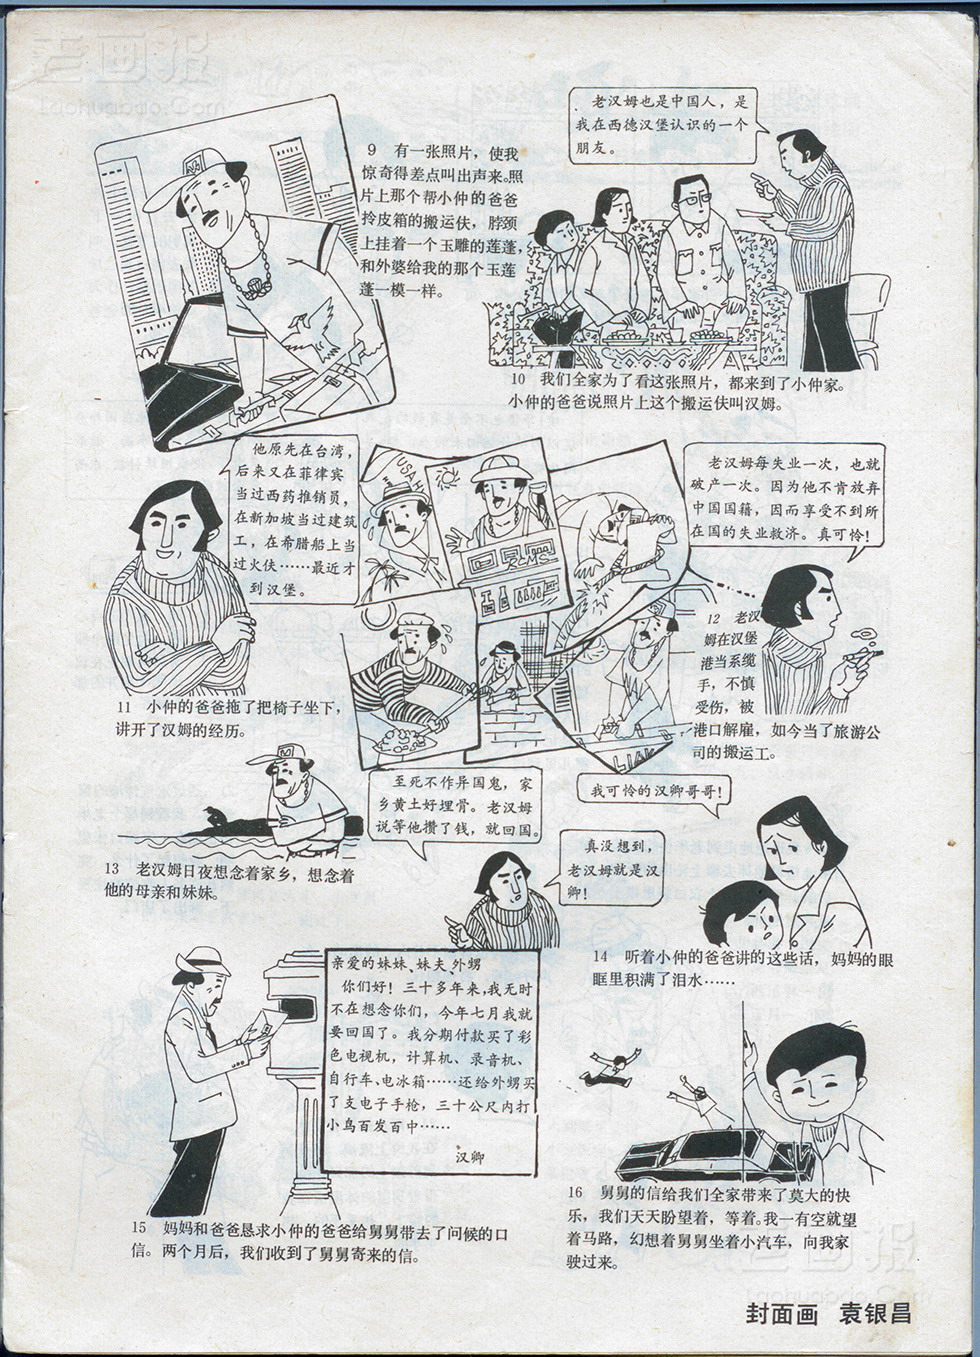 老画报
laohuabao.Com
9 有一张照片，使我
惊奇得差点叫出声来。照
片上那个帮小仲的爸爸
拎皮箱的搬运伕，脖颈
上挂着一个玉雕的莲蓬，
和外婆给我的那个玉莲
蓬一模一样。
老汉姆也是中国人，是
我在西德汉堡认识的一个
朋友。
10 我们全家为了看这张照片，都来到了小仲家。
小仲的爸爸说照片上这个搬运伕叫汉姆。
他原先在台湾，
后来又在菲律宾
当过西药推销员，
在新加坡当过建筑
工，在希腊船上当
过火伕……最近才
到汉堡。
11 小仲的爸爸拖了把椅子坐下，
讲开了汉姆的经历。
老汉姆每失业一次，也就
破产一次。因为他不肯放弃
中国国籍，因而享受不到所
在国的失业救济。真可怜！
12 老汉
姆在汉堡
港当系缆
手，不慎
受伤，被
港口解雇，如今当了旅游公
司的搬运工。
LIAK
至死不作异国鬼，家
乡黄土好埋骨。老汉姆
说等他攒了钱，就回国。
13 老汉姆日夜想念着家乡，想念着
他的母亲和妹妹。
我可怜的汉卿哥哥！
真没想到，
老汉姆就是汉
卿！
14 听着小仲的爸爸讲的这些话，妈妈的眼
眶里积满了泪水……
亲爱的妹妹、妹夫、外甥
你们好！三十多年来，我无时
不在想念你们，今年七月我就
要回国了。我分期付款买了彩
色电视机，计算机、录音机、
自行车、电冰箱……还给外甥买
了支电子手枪，三十公尺内打
小鸟百发百中……
汉卿
15 妈妈和爸爸恳求小仲的爸爸给舅舅带去了问候的口
信。两个月后，我们收到了舅舅寄来的信。
16 舅舅的信给我们全家带来了莫大的快
乐，我们天天盼望着，等着。我一有空就望
着马路，幻想着舅舅坐着小汽车，向我家
驶过来。
老画报
laohuabao.Com
封面画 袁银昌